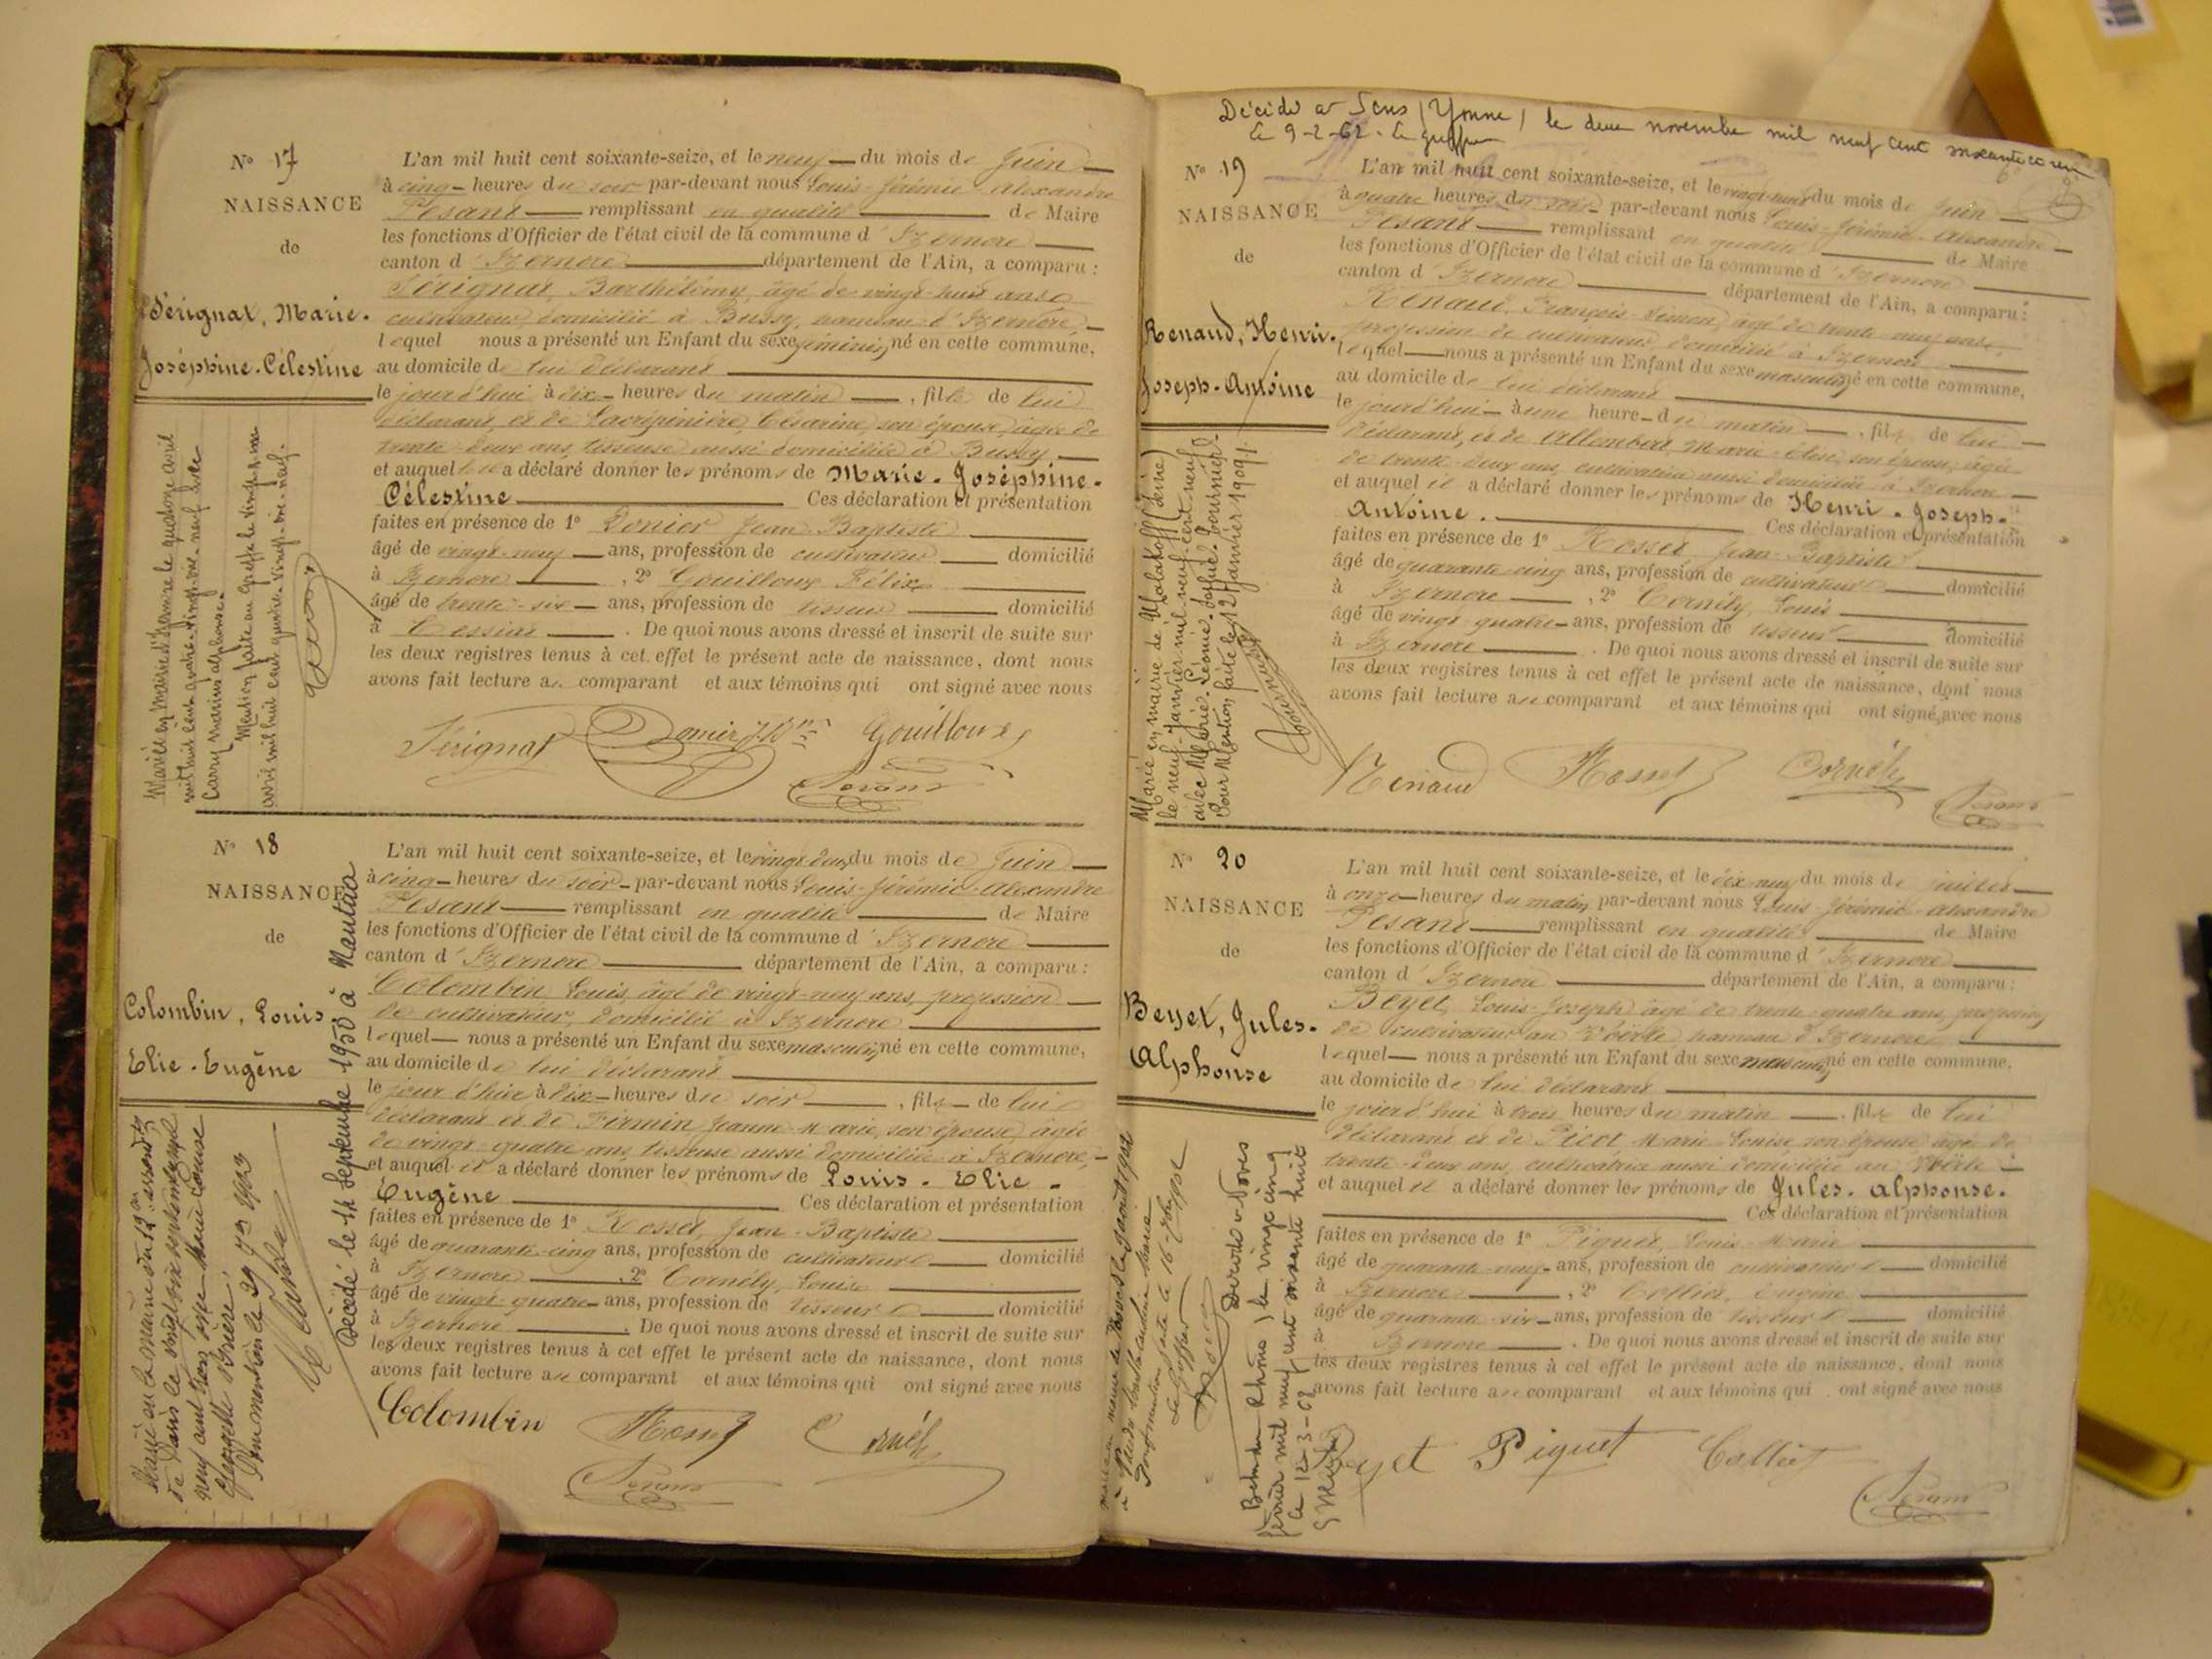 N° 17
NAISSANCE
de
Sérignat, Marie-
Joséphine-Célestine
L'an mil huit cent soixante-seize, et le neuf du mois de Juin
à cinq heures du soir par-devant nous Louis-Jérémie-Alexandre
Pesant remplissant en qualité de Maire
les fonctions d'Officier de l'état civil de la commune d'Izernore
canton d'Izernore département de l'Ain, a comparu :
Sérignat, Barthélémy, âgé de vingt-huit ans,
cultivateur, domicilié à Bussy, hameau d'Izernore,
lequel nous a présenté un Enfant du sexe féminin, né en cette commune,
au domicile de lui déclarant
le jourd'hui à dix heures du matin, fille de lui
déclarant, et de Lacrépinière, Césarine, son épouse, âgée de
trente-deux ans, tisseuse aussi domiciliée à Bussy
et auquel il a déclaré donner les prénoms de Marie-Joséphine-
Célestine Ces déclaration et présentation
faites en présence de 1° Donier Jean-Baptiste
âgé de vingt-neuf ans, profession de cultivateur domicilié
à Izernore, 2° Gouilloux Félix
âgé de trente-six ans, profession de tisseur domicilié
à Cessiat. De quoi nous avons dressé et inscrit de suite sur
les deux registres tenus à cet effet le présent acte de naissance, dont nous
avons fait lecture au comparant et aux témoins qui ont signé avec nous
Sérignat Donier J. Bte Gouilloux
Pesant
Mariée en mairie d'Izernore le quatorze avril
mil huit cent quatre-vingt-dix-neuf avec
Carry Marius Alphonse.
Mention faite au greffe le vingt
avril mil huit cent quatre-vingt-dix-neuf.
N° 18
NAISSANCE
de
Colombin, Louis
Elie-Eugène
L'an mil huit cent soixante-seize, et le vingt-deux du mois de Juin
à cinq heures du soir par-devant nous Louis-Jérémie-Alexandre
Pesant remplissant en qualité de Maire
les fonctions d'Officier de l'état civil de la commune d'Izernore
canton d'Izernore département de l'Ain, a comparu :
Colombin, Louis, âgé de vingt-neuf ans, profession
de cultivateur, domicilié à Izernore
lequel nous a présenté un Enfant du sexe masculin, né en cette commune,
au domicile de lui déclarant
le jour d'hier à dix heures du soir, fils de lui
déclarant et de Firmin, Jeanne-Marie, son épouse, âgée
de vingt-quatre ans, tisseuse aussi domiciliée à Izernore,
et auquel il a déclaré donner les prénoms de Louis-Elie-
Eugène Ces déclaration et présentation
faites en présence de 1° Rosset, Jean-Baptiste
âgé de quarante-cinq ans, profession de cultivateur domicilié
à Izernore, 2° Cornély, Louis
âgé de vingt-quatre ans, profession de tisseur domicilié
à Izernore. De quoi nous avons dressé et inscrit de suite sur
les deux registres tenus à cet effet le présent acte de naissance, dont nous
avons fait lecture au comparant et aux témoins qui ont signé avec nous
Colombin Rosset Cornély
Pesant
Marié en la mairie du arrondt
de Paris le vingt six septembre mil
neuf cent trois avec Louise
Georgette Brière.
Dont mention le 29 7re 1903
Décédé le 14 Septembre 1950 à Nantua
Décédé à Sens (Yonne) le deux novembre mil neuf cent soixante et un
Le 9-2-62. Le greffier
N° 19
NAISSANCE
de
Renaud, Henri-
Joseph-Antoine
L'an mil huit cent soixante-seize, et le vingt-neuf du mois de Juin
à quatre heures du soir par-devant nous Louis-Jérémie-Alexandre
Pesant remplissant en qualité de Maire
les fonctions d'Officier de l'état civil de la commune d'Izernore
canton d'Izernore département de l'Ain, a comparu :
Renaud, François-Simon, âgé de trente-neuf ans,
profession de cultivateur domicilié à Izernore
lequel nous a présenté un Enfant du sexe masculin, né en cette commune,
au domicile de lui déclarant
le jourd'hui à une heure du matin, fils de lui
déclarant, et de Allombert, Marie-Elise, son épouse, âgée
de trente-deux ans, cultivatrice aussi domiciliée à Izernore
et auquel il a déclaré donner les prénoms de Henri-Joseph-
Antoine. Ces déclaration et présentation
faites en présence de 1° Rosset Jean-Baptiste
âgé de quarante-cinq ans, profession de cultivateur domicilié
à Izernore, 2° Cornély, Louis
âgé de vingt-quatre ans, profession de tisseur domicilié
à Izernore. De quoi nous avons dressé et inscrit de suite sur
les deux registres tenus à cet effet le présent acte de naissance, dont nous
avons fait lecture au comparant et aux témoins qui ont signé avec nous
Renaud Rosset Cornély
Pesant
Marié en mairie de Malakoff (Seine)
le neuf Janvier mil neuf cent neuf
avec Marie Léonie Josfie Fournier.
Pour Mention faite le 12 Janvier 1909.
N° 20
NAISSANCE
de
Beyet, Jules-
Alphonse
L'an mil huit cent soixante-seize, et le dix-neuf du mois de juillet
à onze heures du matin par-devant nous Louis-Jérémie-Alexandre
Pesant remplissant en qualité de Maire
les fonctions d'Officier de l'état civil de la commune d'Izernore
canton d'Izernore département de l'Ain, a comparu :
Beyet, Louis-Joseph, âgé de trente-quatre ans, profession
de cultivateur au Voërle, hameau d'Izernore
lequel nous a présenté un Enfant du sexe masculin, né en cette commune,
au domicile de lui déclarant
le jourd'hui à trois heures du matin, fils de lui
déclarant et de Picot Marie-Louise, son épouse âgée de
trente-deux ans, cultivatrice aussi domiciliée au Voërle
et auquel il a déclaré donner les prénoms de Jules-Alphonse.
Ces déclaration et présentation
faites en présence de 1° Piquet, Louis-Marie
âgé de quarante-neuf ans, profession de cultivateur domicilié
à Izernore, 2° Colliet, Eugène
âgé de quarante-six ans, profession de tisseur domicilié
à Izernore. De quoi nous avons dressé et inscrit de suite sur
les deux registres tenus à cet effet le présent acte de naissance, dont nous
avons fait lecture au comparant et aux témoins qui ont signé avec nous
Beyet Piquet Colliet
Pesant
Marié en mairie de le 9 août 1902
à Marie
Pour mention faite le 16 1902
Le Greffier
Décédé à
Rhône) le vingt cinq
février mil neuf cent soixante huit
le 12-3-68